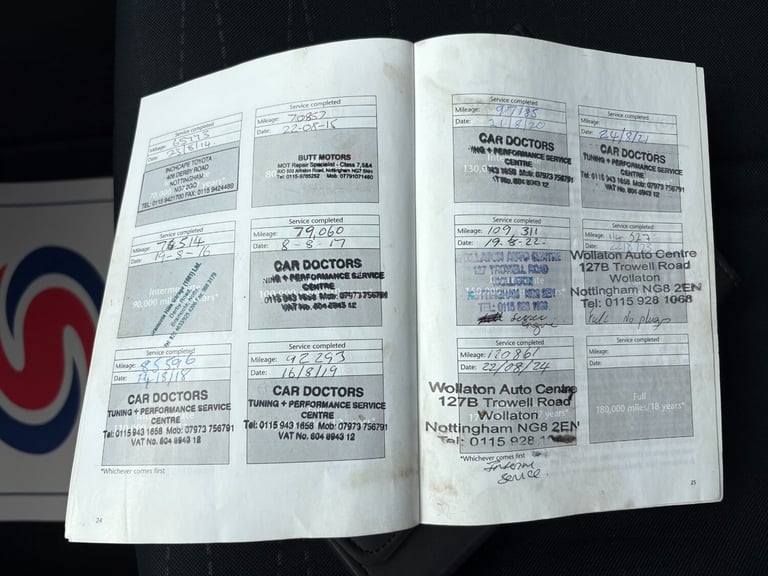 Service completed
Mileage:
Date: 25/8/14.
INCHCAPE TOYOTA
406 DERBY ROAD
NOTTINGHAM
NG7 2GQ
TEL: 0115 9421700 FAX: 0115 9424489
Service completed
Mileage: 70857
Date: 22-08-15
BUTT MOTORS
MOT Repair Specialist - Class 7,5&4
Nottingham NG7
Tel: 0115-9785252 Mob: 07791071460
Service completed
Mileage: 74514
Date: 19-8-16
Intermediate
90,000
Service completed
Mileage: 79,060
Date: 8-8-17
CAR DOCTORS
TUNING + PERFORMANCE SERVICE
CENTRE
0115 943 1658 Mob: 07973 756791
VAT No. 804 8943 12
Service completed
Mileage: 85596
Date: 14/8/18
CAR DOCTORS
TUNING + PERFORMANCE SERVICE
CENTRE
Tel: 0115 943 1658 Mob: 07973 756791
VAT No. 804 8943 12
Service completed
Mileage: 92293
Date: 16/8/19
CAR DOCTORS
TUNING + PERFORMANCE SERVICE
CENTRE
Tel: 0115 943 1658 Mob: 07973 756791
VAT No. 804 8943 12
*Whichever comes first
24
Service completed
Mileage: 97185
Date: 21/8/20
CAR DOCTORS
TUNING + PERFORMANCE SERVICE
CENTRE
943 1658 Mob: 07973 756791
VAT No. 804 8943 12
Service completed
Mileage:
Date: 24/8/21
CAR DOCTORS
TUNING + PERFORMANCE SERVICE
CENTRE
943 1658 Mob: 07973 756791
VAT No. 804 8943 12
Service completed
Mileage: 109,311
Date: 19.8.22
WOLLATON AUTO CENTRE
127 TROWELL ROAD
NOTTINGHAM NG8 2EN
Service completed
Mileage:
Date:
Wollaton Auto Centre
127B Trowell Road
Wollaton
Nottingham NG8 2EN
Tel: 0115 928 1068
Full No plugs
Service completed
Mileage: 120861
Date: 22/08/24
Wollaton Auto Centre
127B Trowell Road
Wollaton
Nottingham NG8 2EN
Tel: 0115 928
Service completed
Mileage:
Date:
Full
180,000 miles/18 years*
*Whichever comes first
Interim
Service.
25